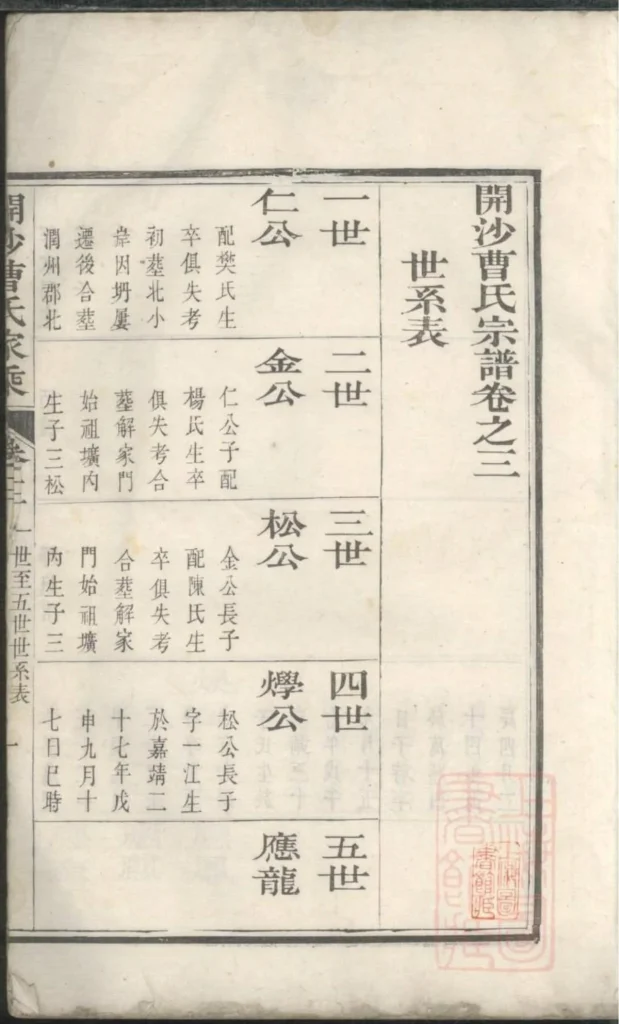 開沙曹氏宗譜卷之三
世系表
一世
仁公
配樊氏生
卒俱失考
初塟北小
岸因坍屢
遷後合塟
潤州郡北
二世
金公
仁公子配
楊氏生卒
俱失考合
塟解家門
始祖壙內
生子三松
三世
松公
金公長子
配陳氏生
卒俱失考
合塟解家
門始祖壙
內生子三
四世
㶅公
松公長子
字一江生
於嘉靖二
十七年戊
申九月十
七日巳時
五世
應龍
開沙曹氏家乘
卷之三
一世至五世世系表
一